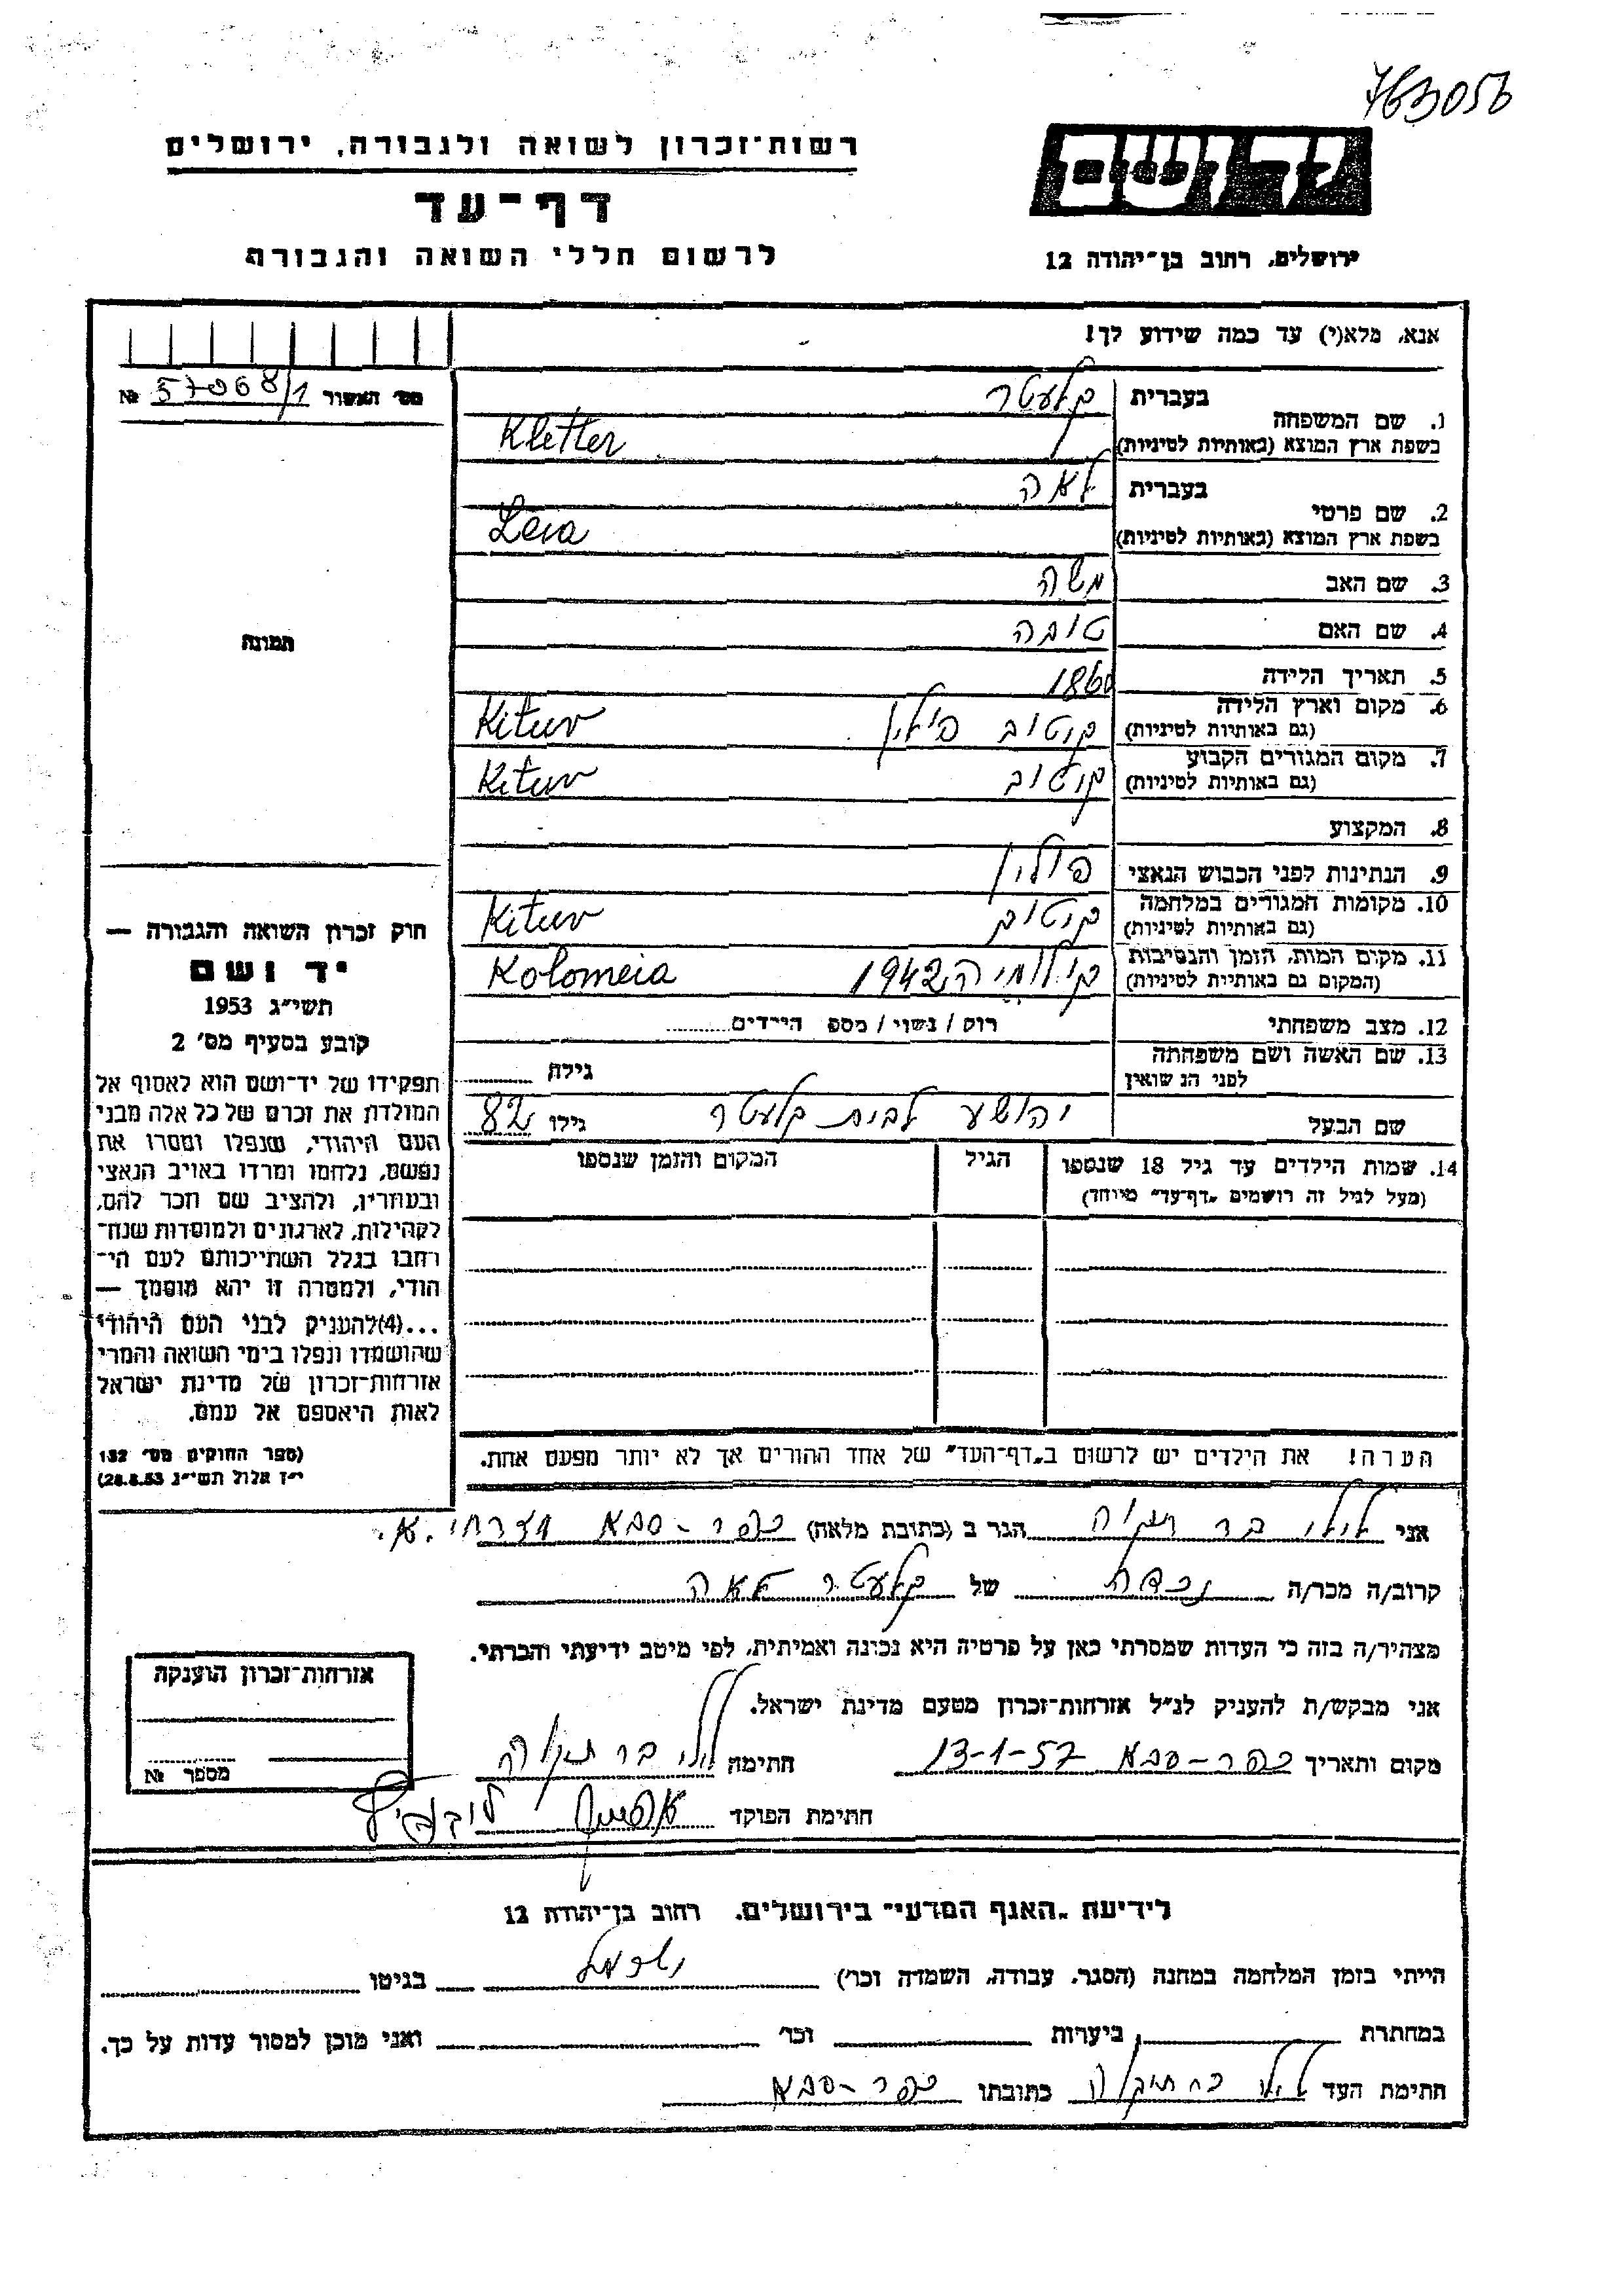 763056
רשות־זכרון לשואה ולגבורה, ירושלים
דף־עד
לרשום חללי השואה והגבורה
יד ושם
ירושלים, רחוב בן־יהודה 12
אנא, מלא(י) עד כמה שידוע לך!
מס׳ האשור 57068/1 №
1. שם המשפחה בעברית קלעטר
בשפת ארץ המוצא (באותיות לטיניות) Kletter
2. שם פרטי בעברית לאה
בשפת ארץ המוצא (באותיות לטיניות) Leia
3. שם האב משה
4. שם האם טובה
5. תאריך הלידה 1860
6. מקום וארץ הלידה (גם באותיות לטיניות) קוטוב פולין Kituv
7. מקום המגורים הקבוע (גם באותיות לטיניות) קוטוב Kituv
8. המקצוע
9. הנתינות לפני הכבוש הנאצי פולין
10. מקומות המגורים במלחמה (גם באותיות לטיניות) קוטוב Kituv
11. מקום המות, הזמן והנסיבות (המקום גם באותיות לטיניות) קולומיה 1942 Kolomeia
12. מצב משפחתי רווק / נשוי / מספ הילדים
13. שם האשה ושם משפחתה לפני הנשואין גילה
שם הבעל יהושע לבית קלעטר גילו 82
14. שמות הילדים עד גיל 18 שנספו הגיל המקום והזמן שנספו
(מעל לגיל זה רושמים „דף־עד״ מיוחד)
תמונה
חוק זכרון השואה והגבורה —
יד ושם
תשי״ג 1953
קובע בסעיף מס׳ 2
תפקידו של יד־ושם הוא לאסוף אל
המולדת את זכרם של כל אלה מבני
העם היהודי, שנפלו ומסרו את
נפשם, נלחמו ומרדו באויב הנאצי
ובעוזריו, ולהציב שם וזכר להם,
לקהילות, לארגונים ולמוסדות שנח־
רבו בגלל השתייכותם לעם הי־
הודי, ולמטרה זו יהא מוסמך —
...(4)להעניק לבני העם היהודי
שהושמדו ונפלו בימי השואה והמרי
אזרחות־זכרון של מדינת ישראל
לאות היאספם אל עמם.
(ספר החוקים מס׳ 132
י״ז אלול תשי״ג 28.8.53)
הערה! את הילדים יש לרשום ב„דף־העד״ של אחד ההורים אך לא יותר מפעם אחת.
אני לילי בר תקוה הגר ב (כתובת מלאה) כפר-סבא מזרחי.א.
קרוב/ה מכר/ה נכדה של קלעטר לאה
מצהיר/ה בזה כי העדות שמסרתי כאן על פרטיה היא נכונה ואמיתית, לפי מיטב ידיעתי והכרתי.
אני מבקש/ת להעניק לנ״ל אזרחות־זכרון מטעם מדינת ישראל.
מקום ותאריך כפר-סבא 13-1-57 חתימה לילי בר תקוה
חתימת הפוקד
אזרחות־זכרון הוענקה
מספר №
לידיעת „האגף המדעי״ בירושלים, רחוב בן־יהודה 12
הייתי בזמן המלחמה במחנה (הסגר, עבודה, השמדה וכר׳) בגיטו
במחתרת ביערות וכר׳ ואני מוכן למסור עדות על כך.
חתימת העד לילי בר תקוה כתובתו כפר-סבא